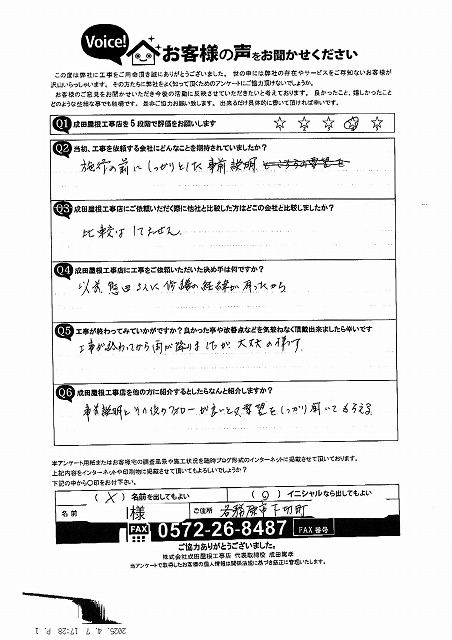 Voice!
お客様の声をお聞かせください
この度は弊社に工事をご用命頂き誠にありがとうございました。 世の中には弊社の存在やサービスをご存知ないお客様が
沢山いらっしゃいます。 その方たちに弊社をよく知って頂くためのアンケートにご協力頂けないでしょうか。
お客様のご意見をお聞かせいただき今後の活動に反映させていただきたいと考えております。 良かったこと、嬉しかったこと
どのような些細な事でも結構です。 是非ご協力お願い致します。 出来るだけ具体的に書いて頂ければ幸いです。
Q1 成田屋根工事店を5段階で評価をお願いします ☆ ☆ ☆ ☆ ☆
Q2 当初、工事を依頼する会社にどんなことを期待されていましたか?
施行の前にしっかりとした事前説明
Q3 成田屋根工事店にご依頼いただく際に他社と比較した方はどこの会社と比較しましたか?
比較はしてません
Q4 成田屋根工事店に工事をご依頼いただいた決め手は何ですか?
以前 さんに修繕の経緯が有ったから
Q5 工事が終わってみていかがですか?良かった事や改善点などを気兼ねなく頂戴出来ましたら幸いです
工事が終わってから雨が降りましたが 大丈夫の様です.
Q6 成田屋根工事店を他の方に紹介するとしたらなんと紹介しますか?
事前説明とその後のフォローが良いと 要望をしっかり聞いてもらえる
本アンケート用紙またはお客様宅の調査風景や施工状況を随時ブログ形式のインターネットに掲載させて頂いております。
上記内容をインターネットや印刷物に掲載させて頂いてもよろしいでしょうか?
下記の中から〇印をお付け下さい。
( X ) 名前を出してもよい ( 〇 ) イニシャルなら出してもよい
名前 様 ご住所 各務原市下切町
FAX 0572-26-8487 FAX番号
ご協力ありがとうございました。
株式会社成田屋根工事店 代表取締役 成田崇孝
当アンケートで取得したお客様の個人情報は関係法規に基づき適正に管理いたします。
2025. 4. 7 17:28 P. 1